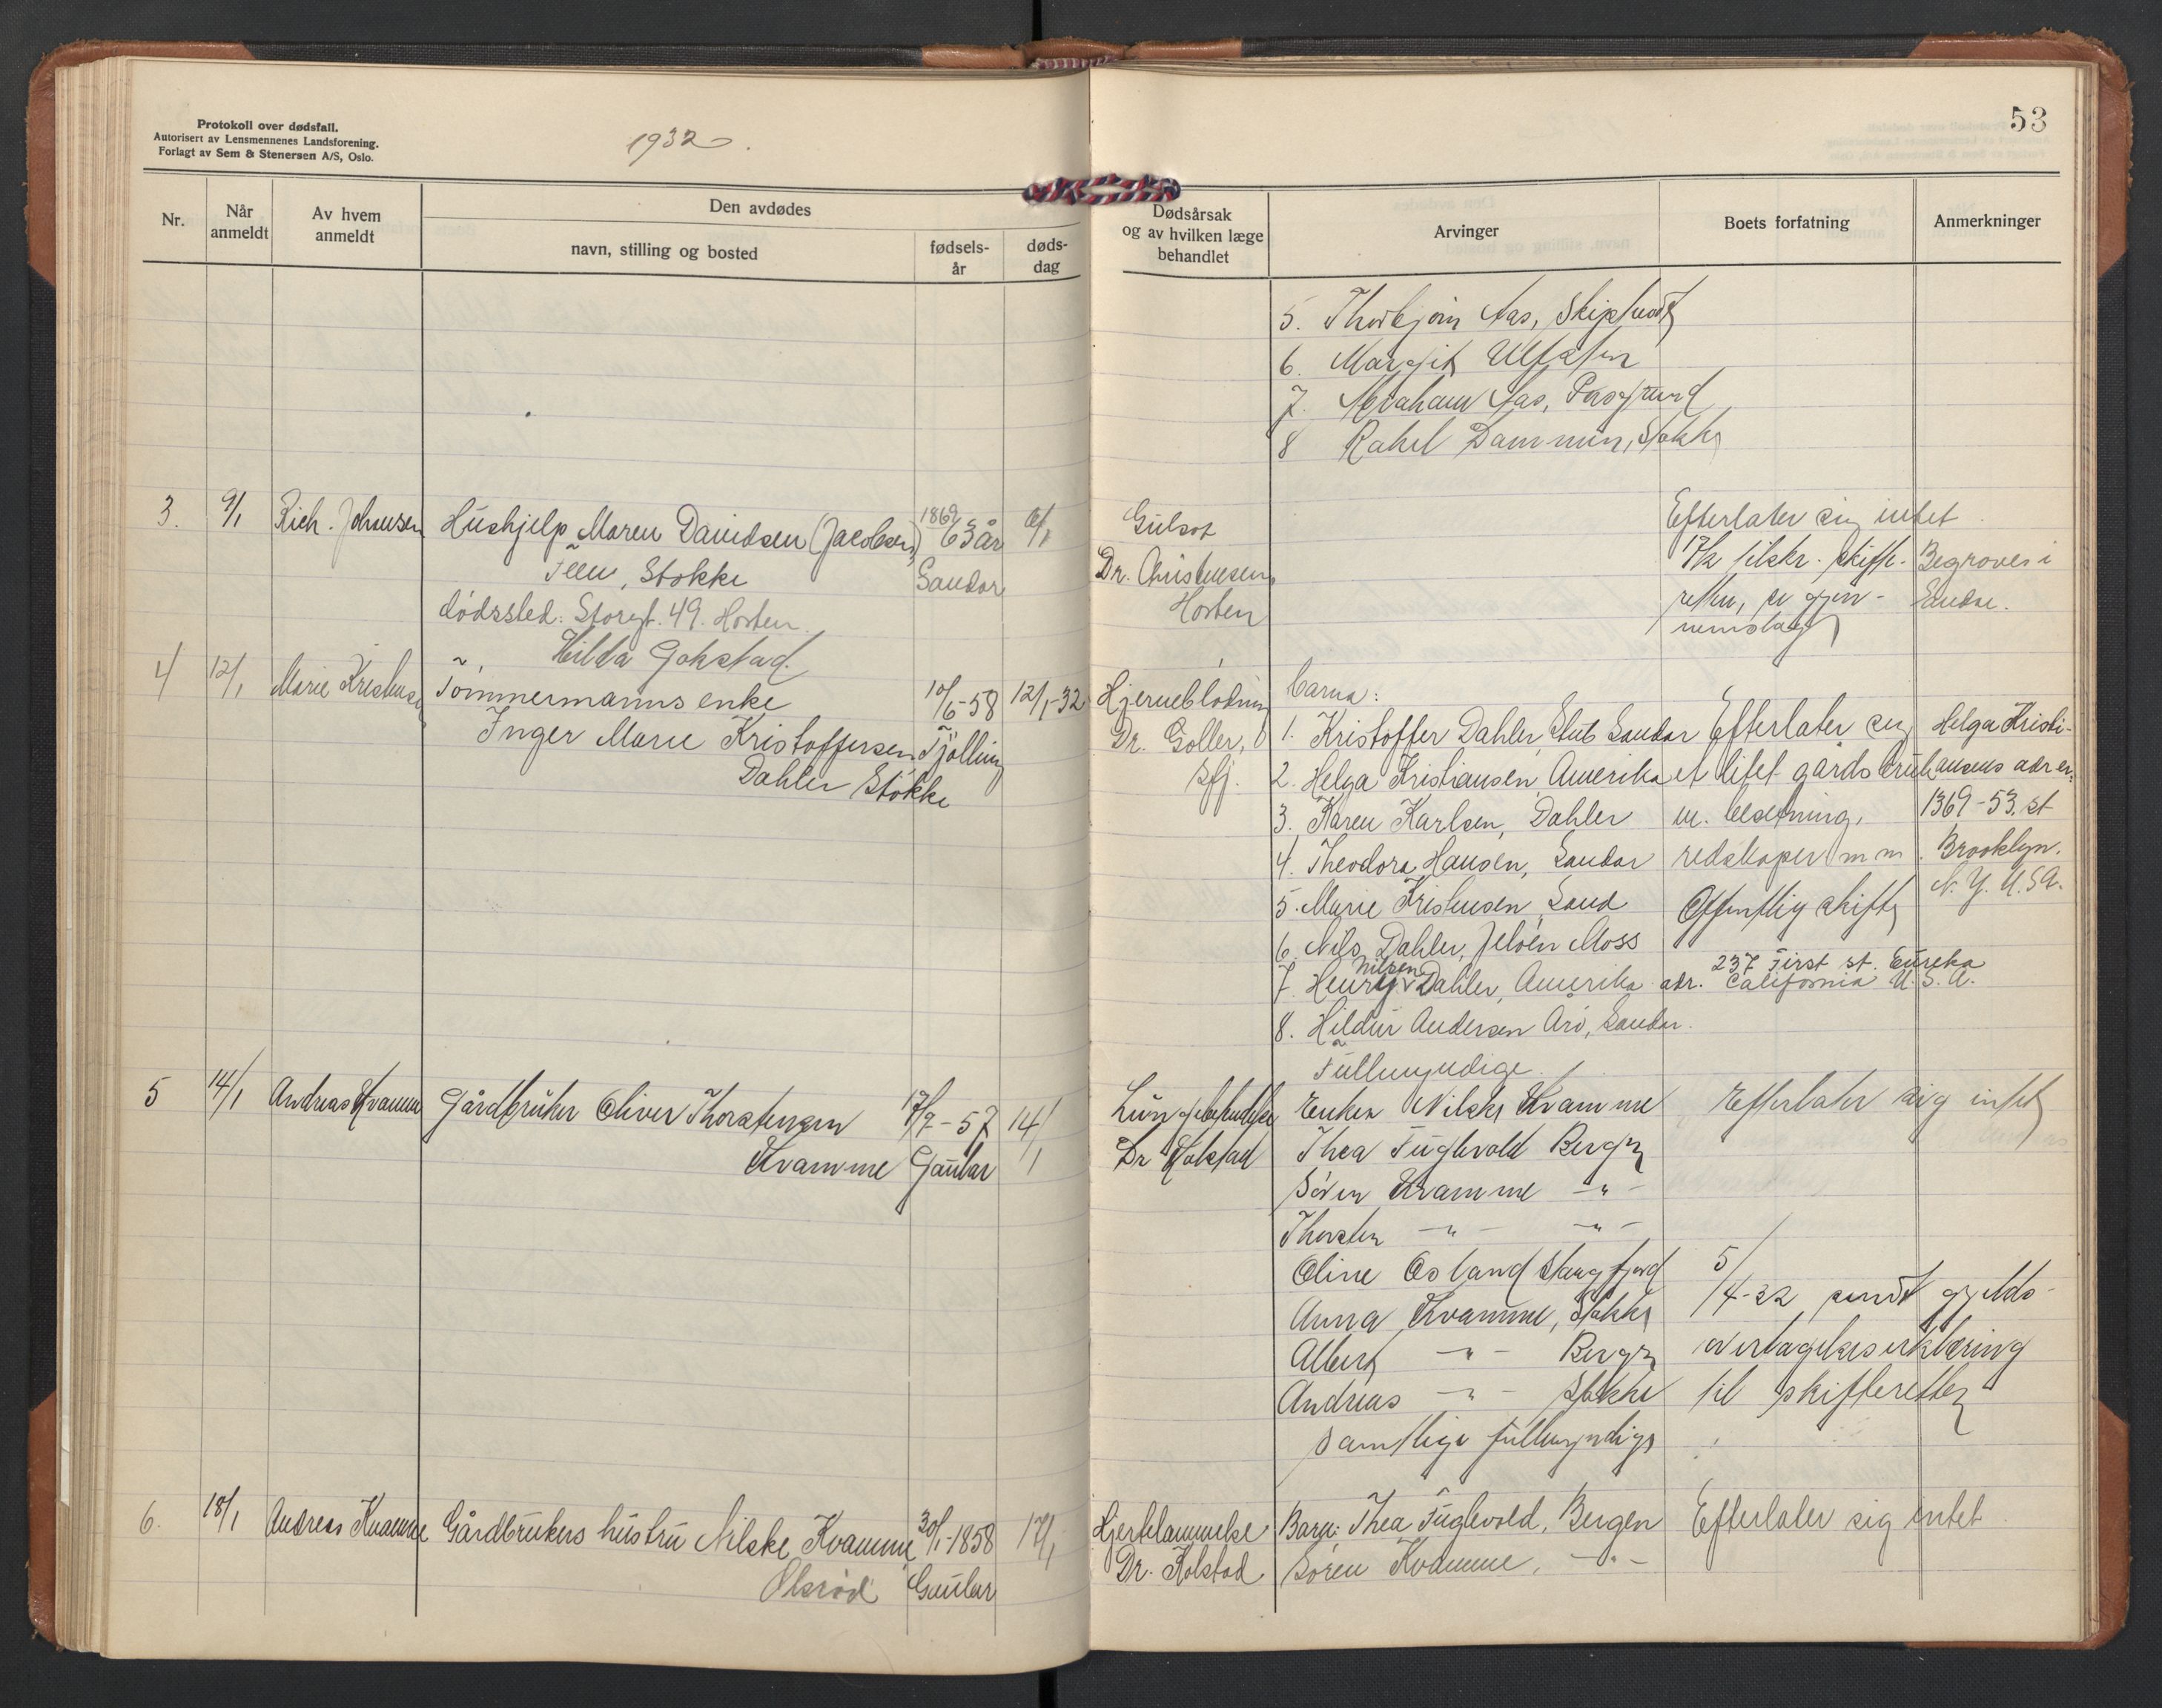 Protokoll over dødsfall.
Autorisert av Lensmennenes Landsforening.
Forlagt av Sem & Stenersen A/S, Oslo.
1932.
53
Nr.
Når anmeldt
Av hvem anmeldt
Den avdødes
navn, stilling og bosted
fødsels-år
døds-dag
Dødsårsak og av hvilken læge behandlet
Arvinger
Boets forfatning
Anmerkninger
5. Thorbjørn Aas,
6. Margit
7. Abraham Aas, Porsgrund
8 Rakel Dammen, Stokke
3. 9/1 Rich. Johansen Hushjelp Maren Davidsen (Jacobsen) 1869 63 år
Stokke Sandar
dødssted: Storgt. 49. Horten.
Hilda Gokstad.
Gulsot
Dr. Christensen
Horten
Efterlater sig intet
skifte-
retten,
Begraves i
4 12/1 Marie Kristensen Tømmermanns enke 10/6-58 12/1-32
Inger Marie Kristoffersen Tjølling
Dahler Stokke
Hjerneblødning
Dr. Goller,
Sfj.
barna:
1. Kristoffer Dahler, Stub Sandar
2. Helga Kristiansen, Amerika
3. Karen Karlsen, Dahler
4. Theodora Hansen, Sandar
5. Marie Kristensen, Sand
6. Nils Dahler, Jeløen Moss
7. Henry Nilsen Dahler, Amerika adr. 237 First st. Eureka
California U.S.A.
8. Hildur Andersen Arø, Sandar.
Fullmyndige.
Efterlater sig
et litet gårdsbruk
m. besetning,
redskaper m m.
Offentlig skifte
Helga Kristi-
ansens adr er.
1369-53. st
Brooklyn.
N. Y. U. S A.
5 14/1 Andreas Kvamme Gårdbruker Oliver Thorstensen 17/7-57 14/1
Kvamme Gaular
Lungebetendelse
Dr Kolstad
Enken Nilske Kvamme
Thea Fuglevold Bergen
Søren Kvamme -"-
Thorsten -"- -"-
Oline Osland Stangfjord
Anna Kvamme, Stokke
Albert -"- Bergen
Andreas -"- Stokke
samtlige fullmyndige
Efterlater sig intet
5/4-32 sendt gjelds-
overtagelseserklæring
til skifteretten
6. 18/1 Andreas Kvamme Gårdbrukers hustru Nilske Kvamme 30/1-1858 17/1
Olsrød Gaular
Hjertelammelse
Dr. Kolstad
Barn: Thea Fuglevold, Bergen
Søren Kvamme, -"-
Efterlater sig intet